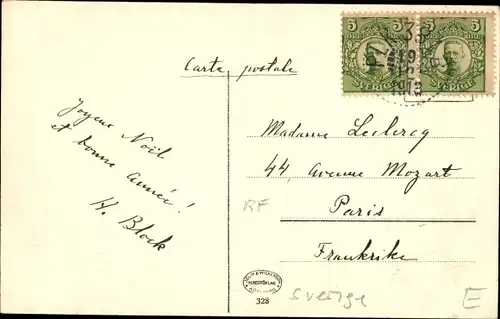 5 5
ÖRE ÖRE
SVERIGE SVERIGE
Carte postale
Joyeux Noël
et bonne année!
H. Block
Madame Leclercq
44, avenue Mozart
Paris
Frankrike
RF
328
Sverige
E